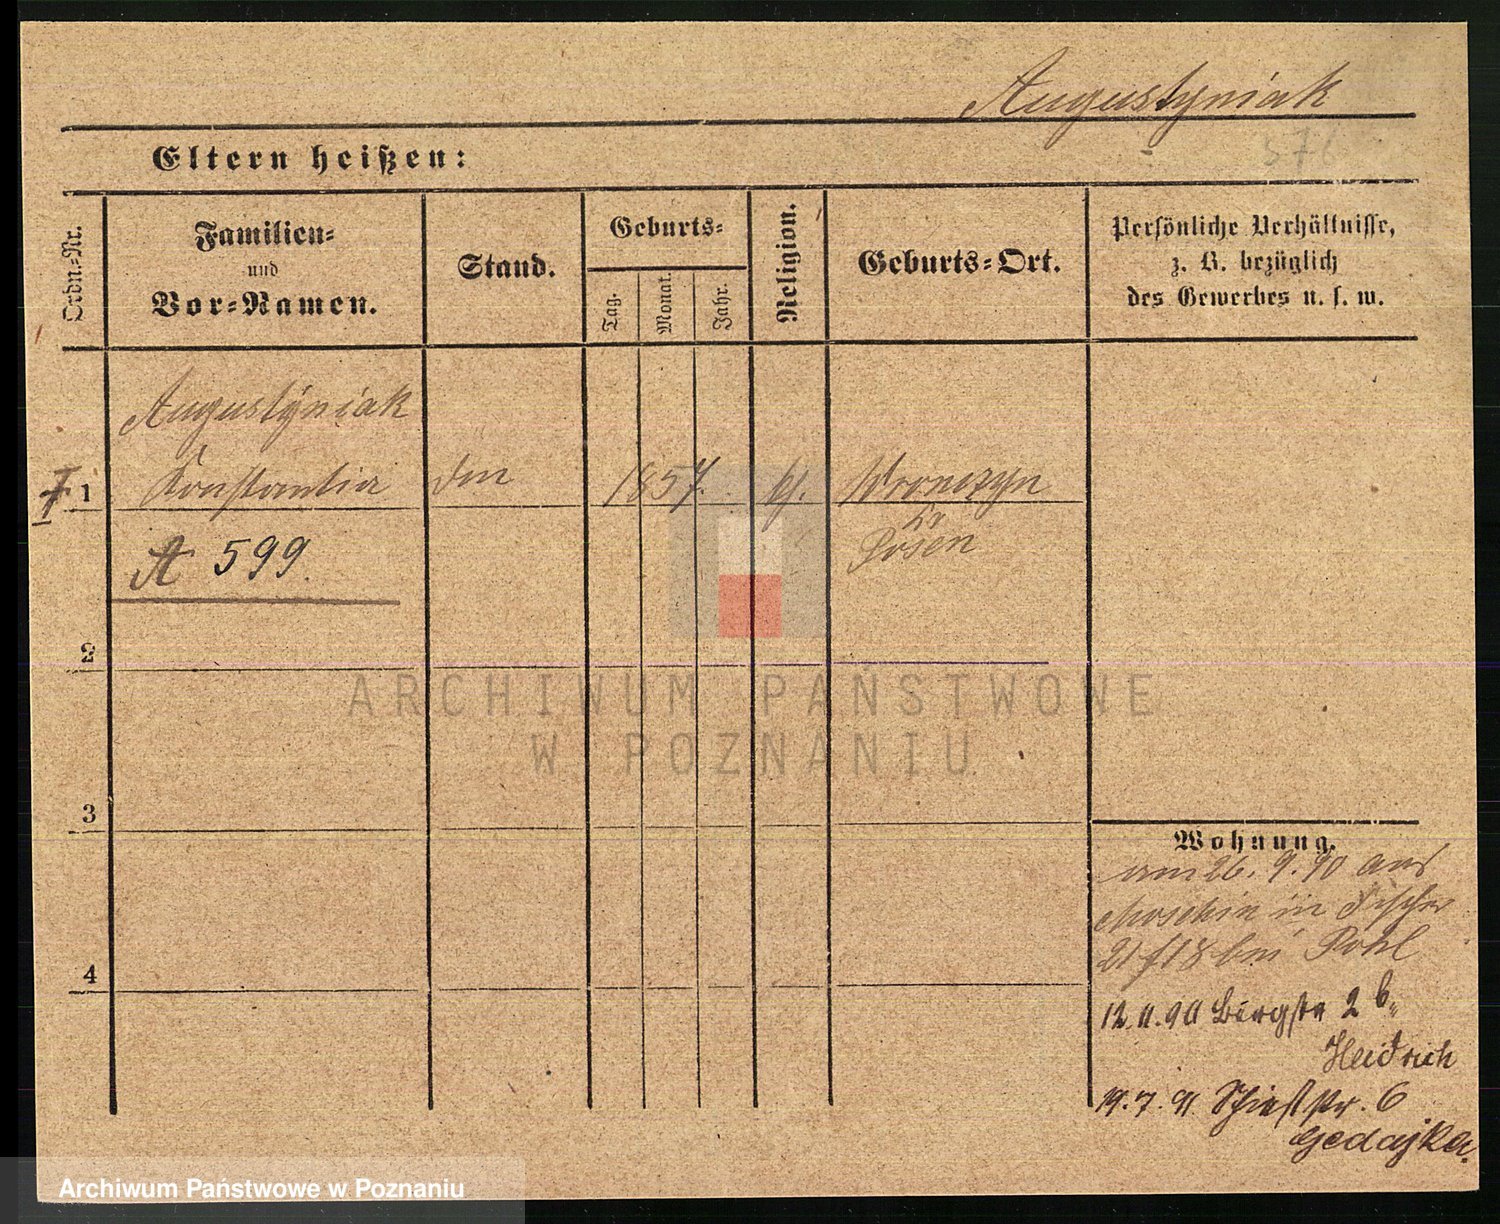 Augustyniak
576
Eltern heißen:
Ordn.-Nr.
Familien-
und
Vor-Namen.
Stand.
Geburts-
Tag.
Monat.
Jahr.
Religion.
Geburts-Ort.
Persönliche Verhältnisse,
z. B. bezüglich
des Gewerbes u. s. w.
Augustyniak
1 Konstantia 1857. Wronczyn
Kr
Posen
A 599.
2
ARCHIWUM PAŃSTWOWE
W POZNANIU
3
Wohnung.
am 26.9.90 aus
Moschin in Fischer
21 f 18 bei Pohl
4
12.11.90 Bergstr 2 b.
Heidrich
19.7.91 Schießstr. 6
Gedajka.
Archiwum Państwowe w Poznaniu